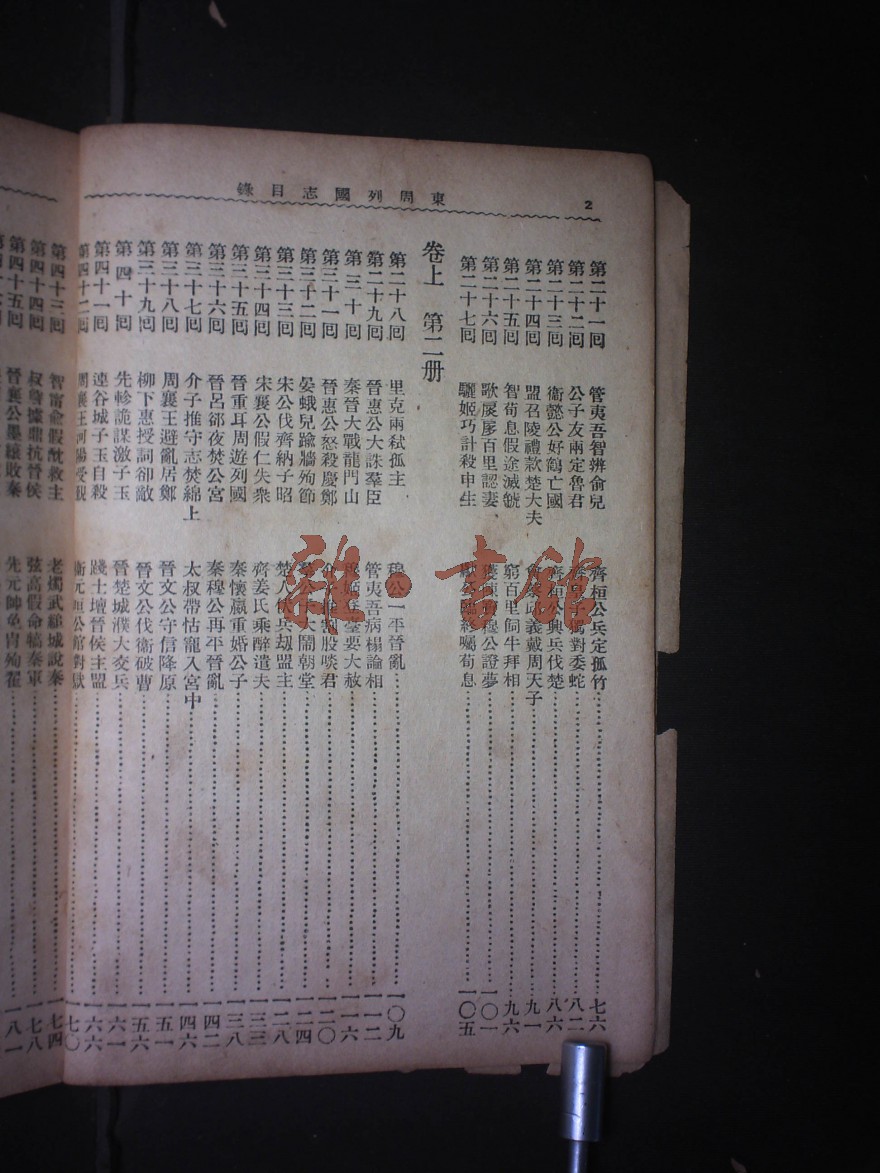 東周列國志目錄
2
第二十一回 管夷吾智辨兪兒 齊桓公兵定孤竹 七六
第二十二回 公子友兩定魯君 獨對委蛇 八二
第二十三回 衞懿公好鶴亡國 齊桓公興兵伐楚 八六
第二十四回 盟召陵禮款楚大夫 會葵丘義戴周天子 九一
第二十五回 智荀息假途滅虢 窮百里飼牛拜相 九六
第二十六回 歌扊扅百里認妻 獲陳寶穆公證夢 一〇一
第二十七回 驪姬巧計殺申生 獻公臨終囑荀息 一〇五
卷上 第二册
第二十八回 里克兩弒孤主 穆公一平晉亂 一〇九
第二十九回 晉惠公大誅羣臣 管夷吾病榻論相 一一二
第三十回 秦晉大戰龍門山 穆姬登臺要大赦 一一六
第三十一回 晉惠公怒殺慶鄭 介子推割股啖君 一二〇
第三十二回 晏蛾兒踰牆殉節 大鬧朝堂 一二四
第三十三回 宋公伐齊納子昭 楚人伏兵刼盟主 一二八
第三十四回 宋襄公假仁失衆 齊姜氏乘醉遣夫 一三三
第三十五回 晉重耳周遊列國 秦懷嬴重婚公子 一三八
第三十六回 晉呂郤夜焚公宮 秦穆公再平晉亂 一四二
第三十七回 介子推守志焚綿上 太叔帶怙寵入宮中 一四六
第三十八回 周襄王避亂居鄭 晉文公守信降原 一五一
第三十九回 柳下惠授詞卻敵 晉文公伐衞破曹 一五六
第四十回 先軫詭謀激子玉 晉楚城濮大交兵 一六一
第四十一回 連谷城子玉自殺 踐土壇晉侯主盟 一六六
第四十二回 周襄王河陽受覲 衞元咺公館對獄 一七〇
第四十三回 智甯兪假酖救主 老燭武縋城說秦 一七四
第四十四回 叔詹據鼎抗晉侯 弦高假命犒秦軍 一七八
第四十五回 晉襄公墨縗敗秦 先元帥免冑殉翟 一八一
雜·書館